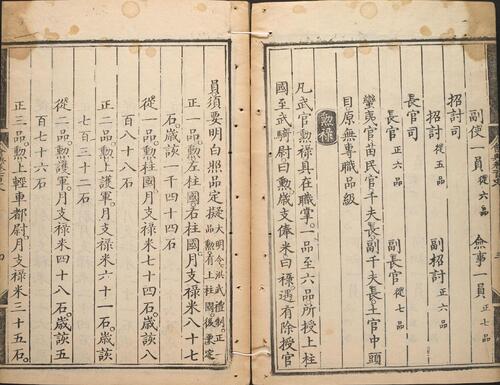 副使一員從六品 僉事一員正七品
招討司
招討從五品 副招討正六品
長官司
長官正六品 副長官從七品
蠻夷官苗民官千夫長副千夫長土官中頭
目原無專職品級
勲祿
凡武官勲祿具在職掌一品至六品所授上柱
國至武騎尉曰勲歲支俸米曰祿遇有除授官
員須要明白照品定擬大明令洪武禮制。正
品勲有上柱國。後定
正一品。勲左柱國右柱國。月支祿米八十七
石。歲該一千四十四石
從一品。勲柱國。月支祿米七十四石。歲該八
百八十八石
正二品。勲上護軍。月支祿米六十一石。歲該
七百三十二石
從二品。勲護軍。月支祿米四十八石。歲該五
百七十六石
正三品。勲上輕車都尉。月支祿米三十五石。